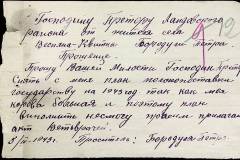 Господину Претору Ландовского
района от жителя села
Весьма-Квитка Бородуци Петра.
Прошение
Прошу Вашей Милости Господин Претор
Снять с мене план молокопоставки
государству на 1943 год так как моя
корова больная и поэтому план
выполнить несмогу при сем прилагаю
акт Ветврача.
1943. Проситель: Бородуця Петро.